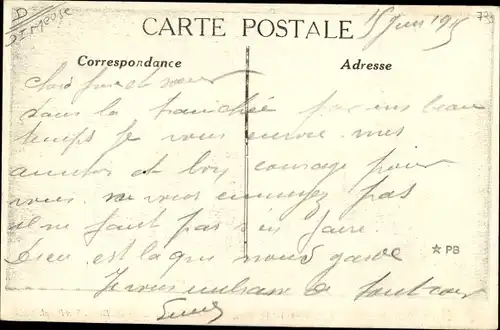 D
55 Meuse
CARTE POSTALE
15 Juin 1915
739
Correspondance
Adresse
frère et sœur
dans la tranchée par un beau
temps je vous envoie mes
amitiés et bon courage pour
vous ne vous ennuyez pas
il ne faut pas s'en faire
Dieu est la qui nous garde
Je vous embrasse a tout cœur
★ PB